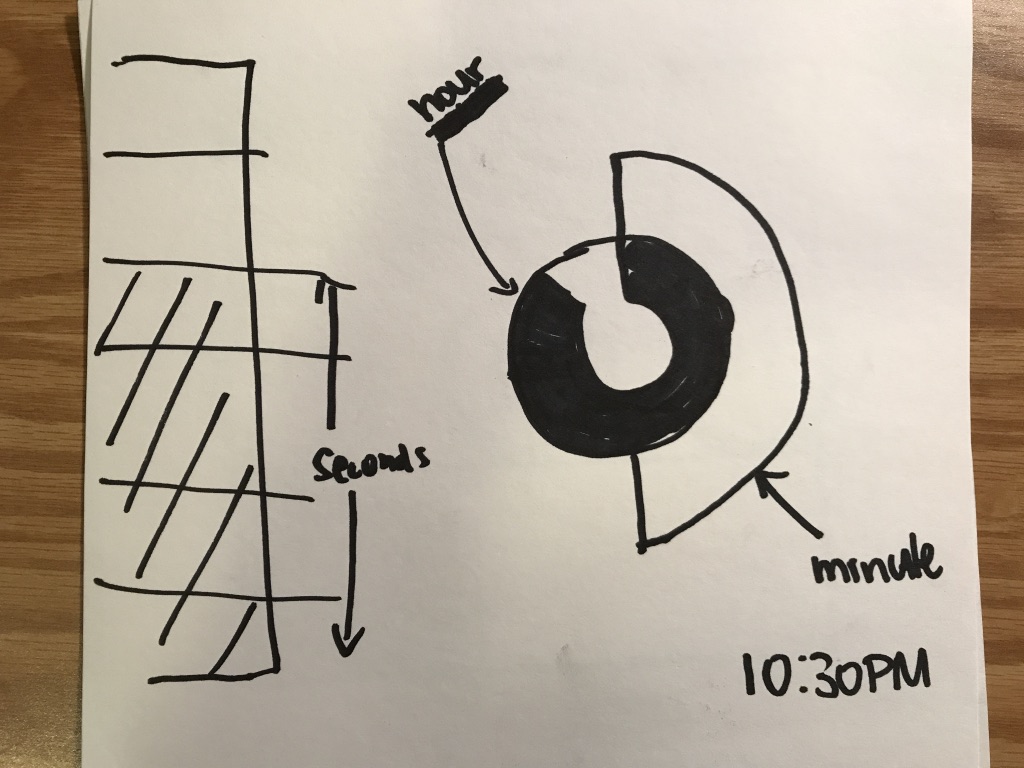 hour
seconds
minute
10:30PM